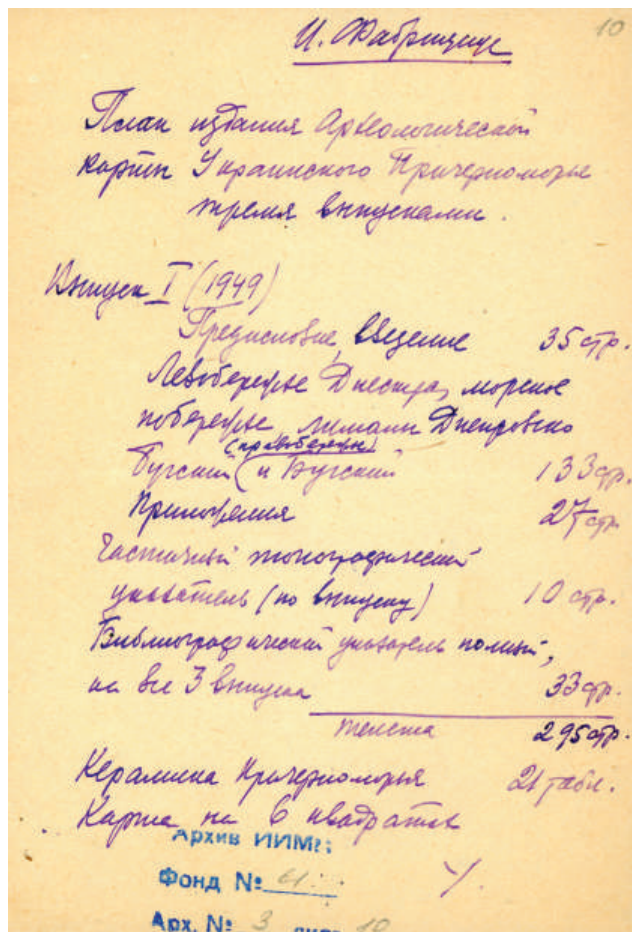 10
И. Фабрициус
План издания Археологической
карты Украинского Причерноморья
тремя выпусками.
Выпуск I (1949)
Предисловие, введение 35 стр.
Левобережье Днестра, морское
побережье лимани Днепровско
(правобережн)
Бугский (и Бугский 133 стр.
Приложения 27 стр
Частичный топографический
указатель (по выпуску) 10 стр.
Библиографический указатель полный,
на все 3 выпуска 33 стр.
текста 295 стр.
Керамика Причерноморья 21 табл.
Карта на 6 квадратах
Архив ИИМК
Фонд № 61
Арх. № 3 лист 10